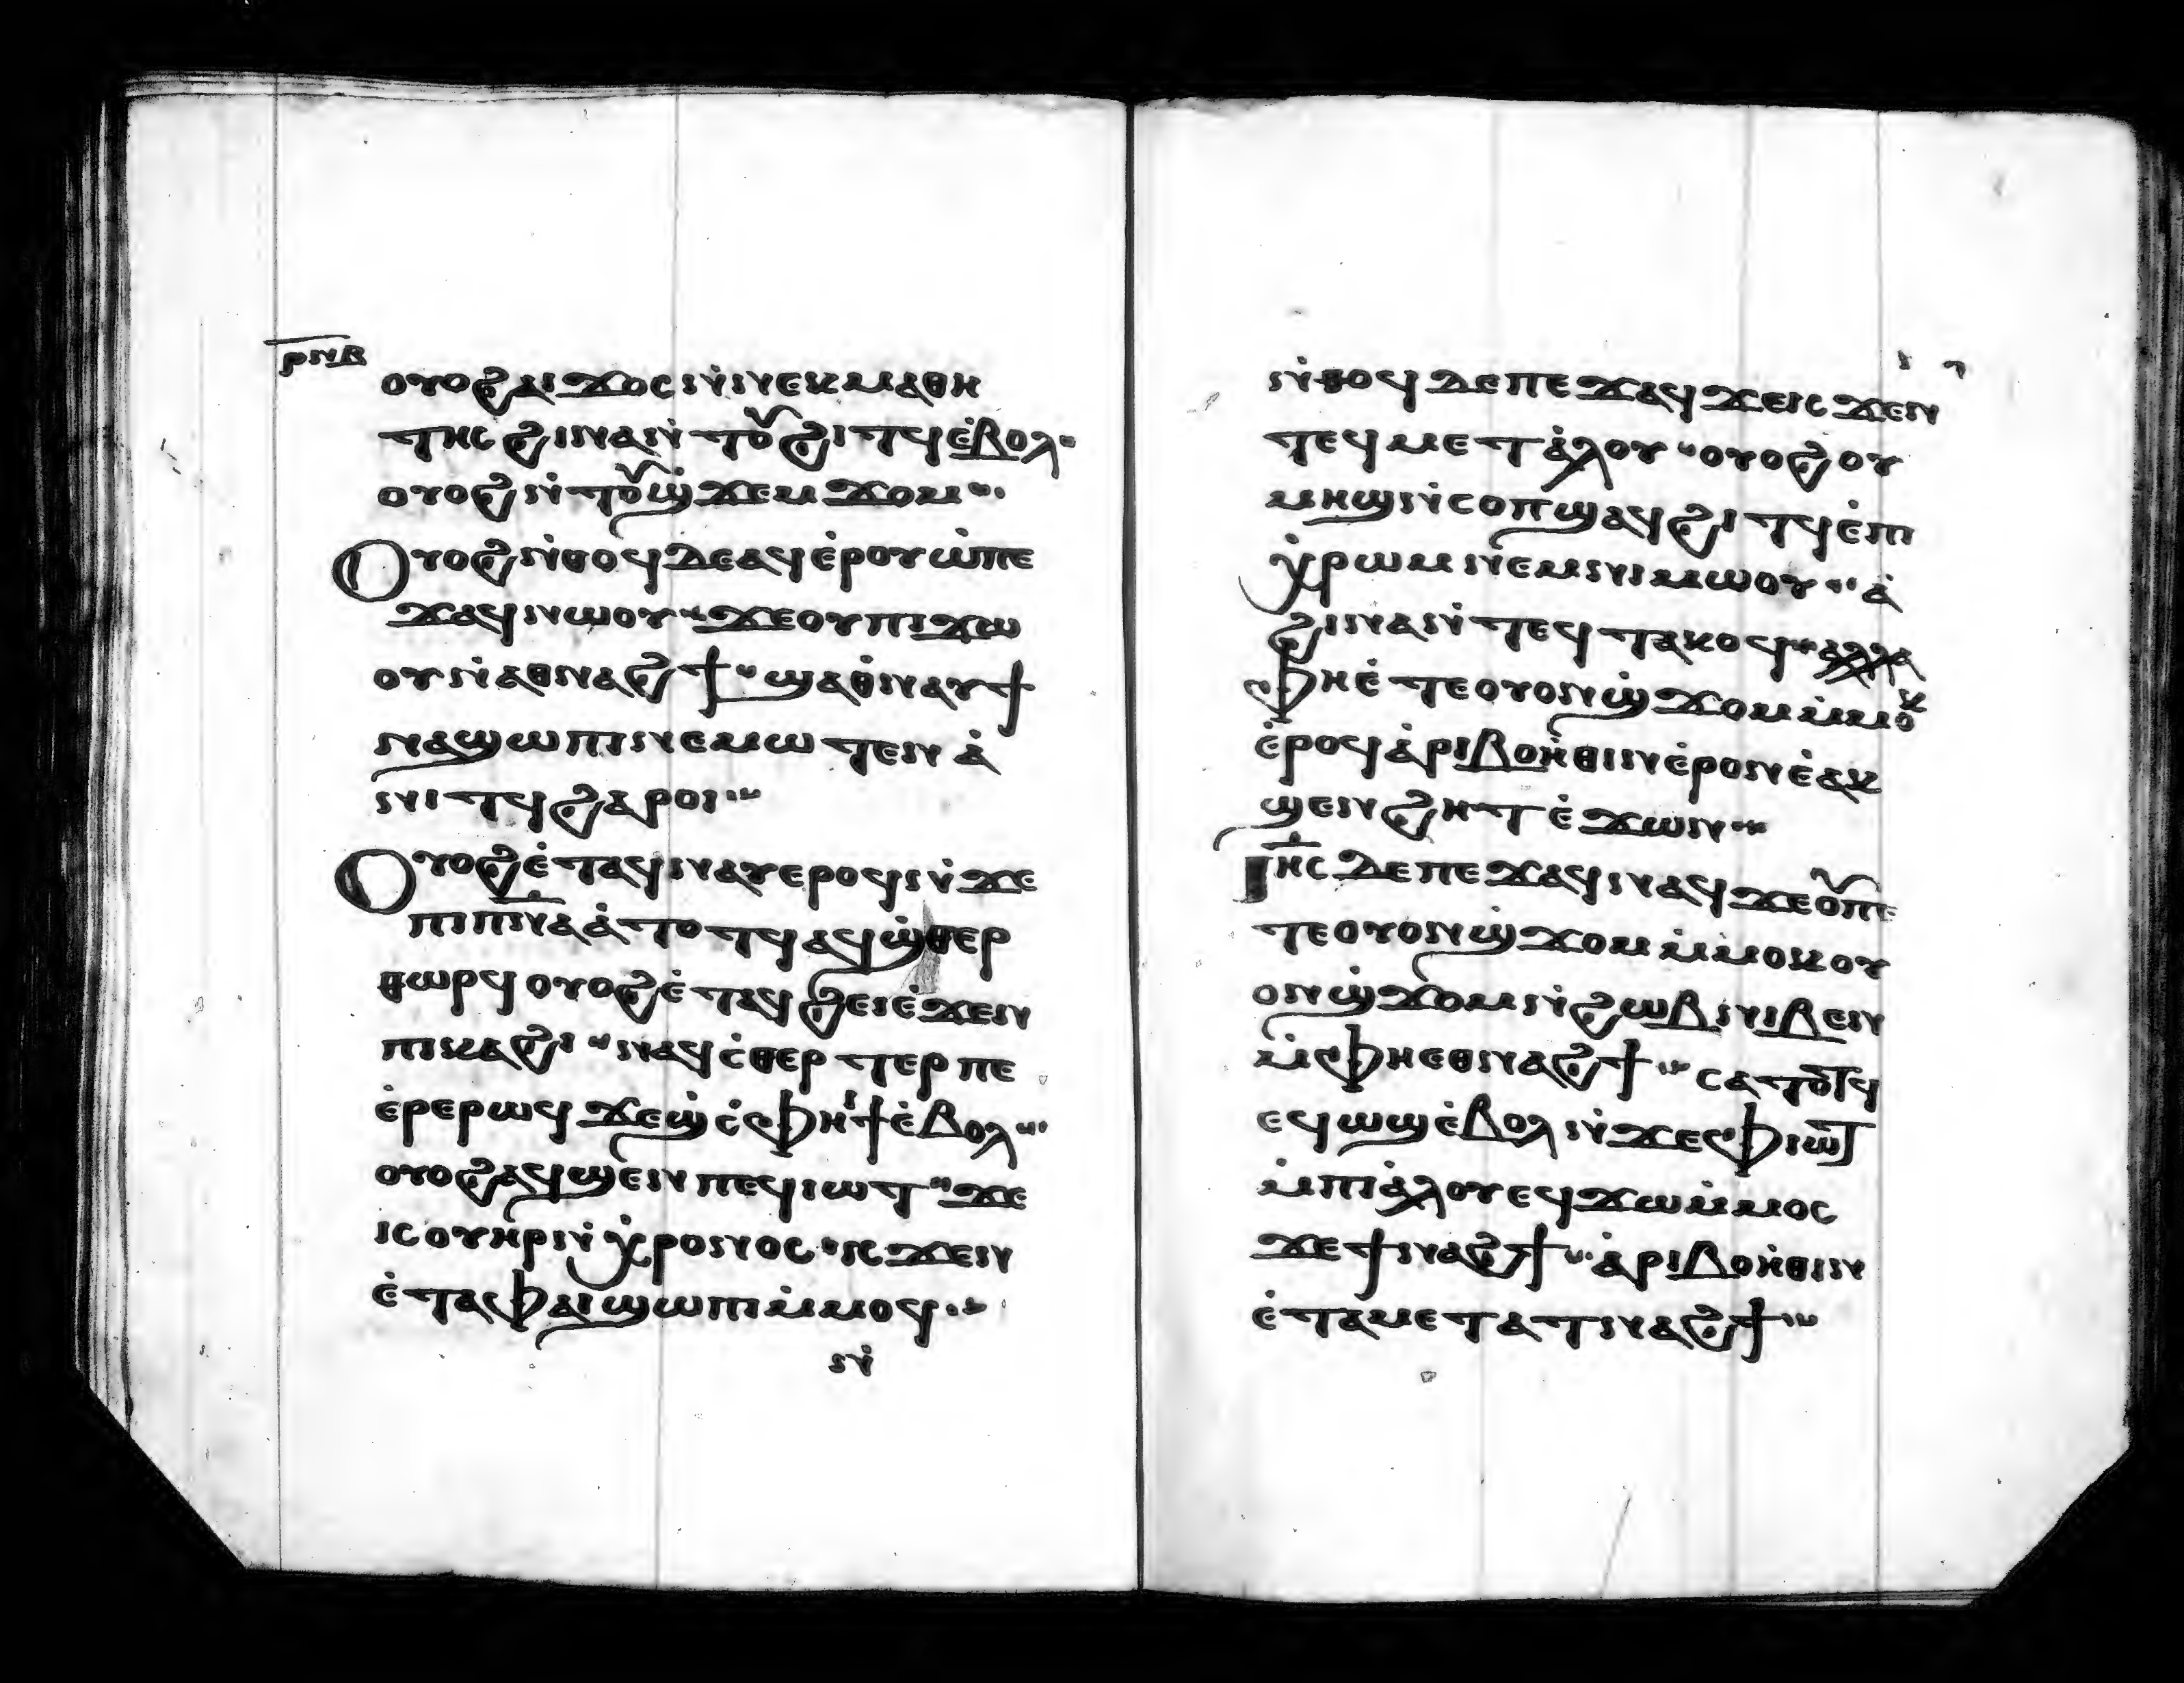 ⲣⲛⲃ
ⲟⲩⲟϩⲁⲓϫⲟⲥⲛ̇ⲛⲉⲕⲙⲁⲑⲏ
ⲧⲏⲥϩⲓⲛⲁⲛ̇ⲧⲟⲩϩⲓⲧϥⲉ̇ⲃⲟⲗ
ⲟⲩⲟϩⲛ̇ⲧⲟⲩϣ̇ϫⲉⲙϫⲟⲙ
Ⲟⲩⲟϩⲛ̇ⲑⲟϥⲇⲉⲁϥⲉ̇ⲣⲟⲩⲱ̇ⲡⲉ
ϫⲁϥⲛⲱⲟⲩ ϫⲉⲟⲩⲡⲓϫⲱ
ⲟⲩⲛ̇ⲁⲑⲛⲁϩϯ ϣⲁⲑ̇ⲛⲁⲩϯ
ⲛⲁϣⲱⲡⲓⲛⲉⲙⲱⲧⲉⲛ ⲁ̇
ⲛⲓⲧϥϩⲁⲣⲟⲓ
Ⲟⲩⲟϩⲉ̇ⲧⲁϥⲛⲁⲩⲉⲣⲟϥⲛ̇ϫⲉ
ⲡⲓⲡ̅ⲛ̅ⲁ̅ⲁ̇ⲧⲟⲧϥⲁϥϣ̇ⲑⲉⲣ
ⲑⲱⲣϥⲟⲩⲟϩⲉ̇ⲧⲁϥϩⲉⲓⲉ̇ϫⲉⲛ
ⲡⲓⲕⲁϩⲓ ⲛⲁϥⲥ̇ⲑⲉⲣⲧⲉⲣⲡⲉ
ⲉ̇ⲣⲉⲣⲱϥϫⲉϣ̇ⲥ̇ⲫⲏⲓϯⲉ̇ⲃⲟⲗ
ⲟⲩⲟϩⲁϥϣⲉⲛⲡⲉϥⲓⲱⲧ ϫⲉ
ⲓⲥⲟⲩⲏ̇ⲣⲛ̇ⲭ̇ⲣⲟⲛⲟⲥ ⲓⲥϫⲉⲛ
ⲉ̇ⲧⲁⲫⲁⲓϣⲱⲡⲓⲙ̇ⲙⲟϥ
ⲛ̇
ⲛ̇ⲑⲟϥⲇⲉⲡⲉϫⲁϥϫⲉⲓⲥϫⲉⲛ
ⲧⲉϥⲙⲉⲧⲁ̇ⲗⲟⲩ ⲟⲩⲟϩⲟⲩ
ⲙⲏϣⲛ̇ⲥⲟⲡϣⲁϥϩⲓⲧϥⲉ̇ⲡ
ⲭ̇ⲣⲱⲙⲛⲉⲙⲛⲓⲙⲱⲟⲩ ⲁ̇
ϩⲓⲛⲁⲛ̇ⲧⲉϥⲧⲁⲕⲟϥ ⲁⲗⲗⲁ
ⲫⲏⲉ̇ⲧⲉⲟⲩⲟⲛϣ̇ϫⲟⲙⲙ̇ⲙⲟⲕ
ⲉ̇ⲣⲟϥⲁ̇ⲣⲓⲃⲟⲏ̇ⲑⲓⲛⲉ̇ⲣⲟⲛⲉ̇ⲁⲕ
ϣⲉⲛϩⲏⲧⲉ̇ϫⲱⲛ
Ⲓⲏ̅ⲥⲇⲉⲡⲉϫⲁϥⲛⲁϥϫⲉⲟⲩⲡⲉ
ⲧⲉⲟⲩⲟⲛϣ̇ϫⲟⲙⲙ̇ⲙⲟⲕⲟⲩ
ⲟⲛϣ̇ϫⲟⲙⲛ̇ϩⲱⲃⲛⲓⲃⲉⲛ
ⲙ̇ⲫⲏⲉⲑⲛⲁϩϯ ⲥⲁⲧⲟⲧϥ
ⲉϥⲱϣⲉ̇ⲃⲟⲗⲛ̇ϫⲉⲫⲓⲱⲧ
ⲙ̇ⲡⲓⲁ̇ⲗⲟⲩⲉϥϫⲱⲙ̇ⲙⲟⲥ
ϫⲉϯⲛⲁϩϯ ⲁ̇ⲣⲓⲃⲟⲏ̇ⲑⲓⲛ
ⲉ̇ⲧⲁⲙⲉⲧⲁⲧⲛⲁϩϯ